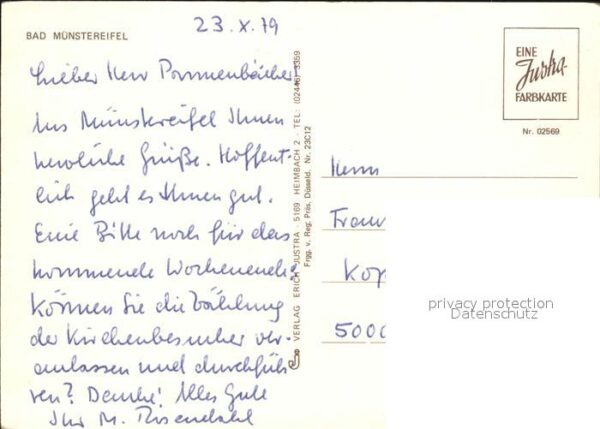 BAD MÜNSTEREIFEL
23.X.79
Lieber Herr
Aus Münstereifel Ihnen
herzliche Grüße. Hoffent-
lich geht es Ihnen gut.
Eine Bitte noch für das
kommende Wochenende:
Können Sie die Zählung
der Kirchenbesucher ver-
anlassen und durchfüh-
ren? Danke! Alles Gute
Ihr M. Rosendahl
VERLAG ERICH JUSTRA · 5169 HEIMBACH 2 · TEL: (02446) 3359
Frgg. v. Reg. Präs. Düsseld. Nr. 23C12
EINE
Justra-
FARBKARTE
Nr. 02569
Herrn
Fran
Kop
5000
privacy protection
Datenschutz